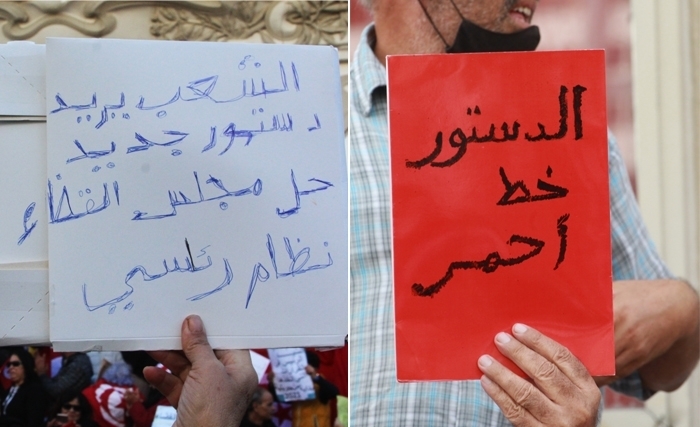 الشعب يريد
دستور جديد
حل مجلس القضاء
نظام رئسي
الدستور
خط
أحمر